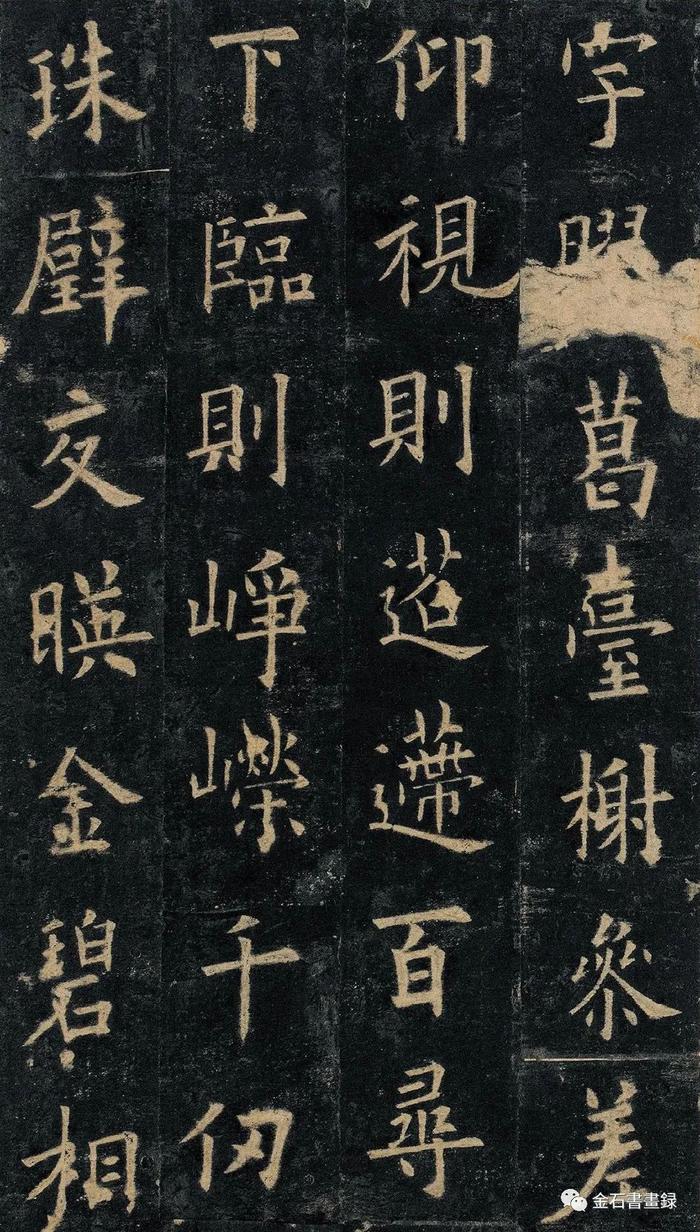 宇葛臺榭參差
仰視則迢遰百尋
下臨則崢嶸千仞
珠壁交暎金碧相
金石書畫録